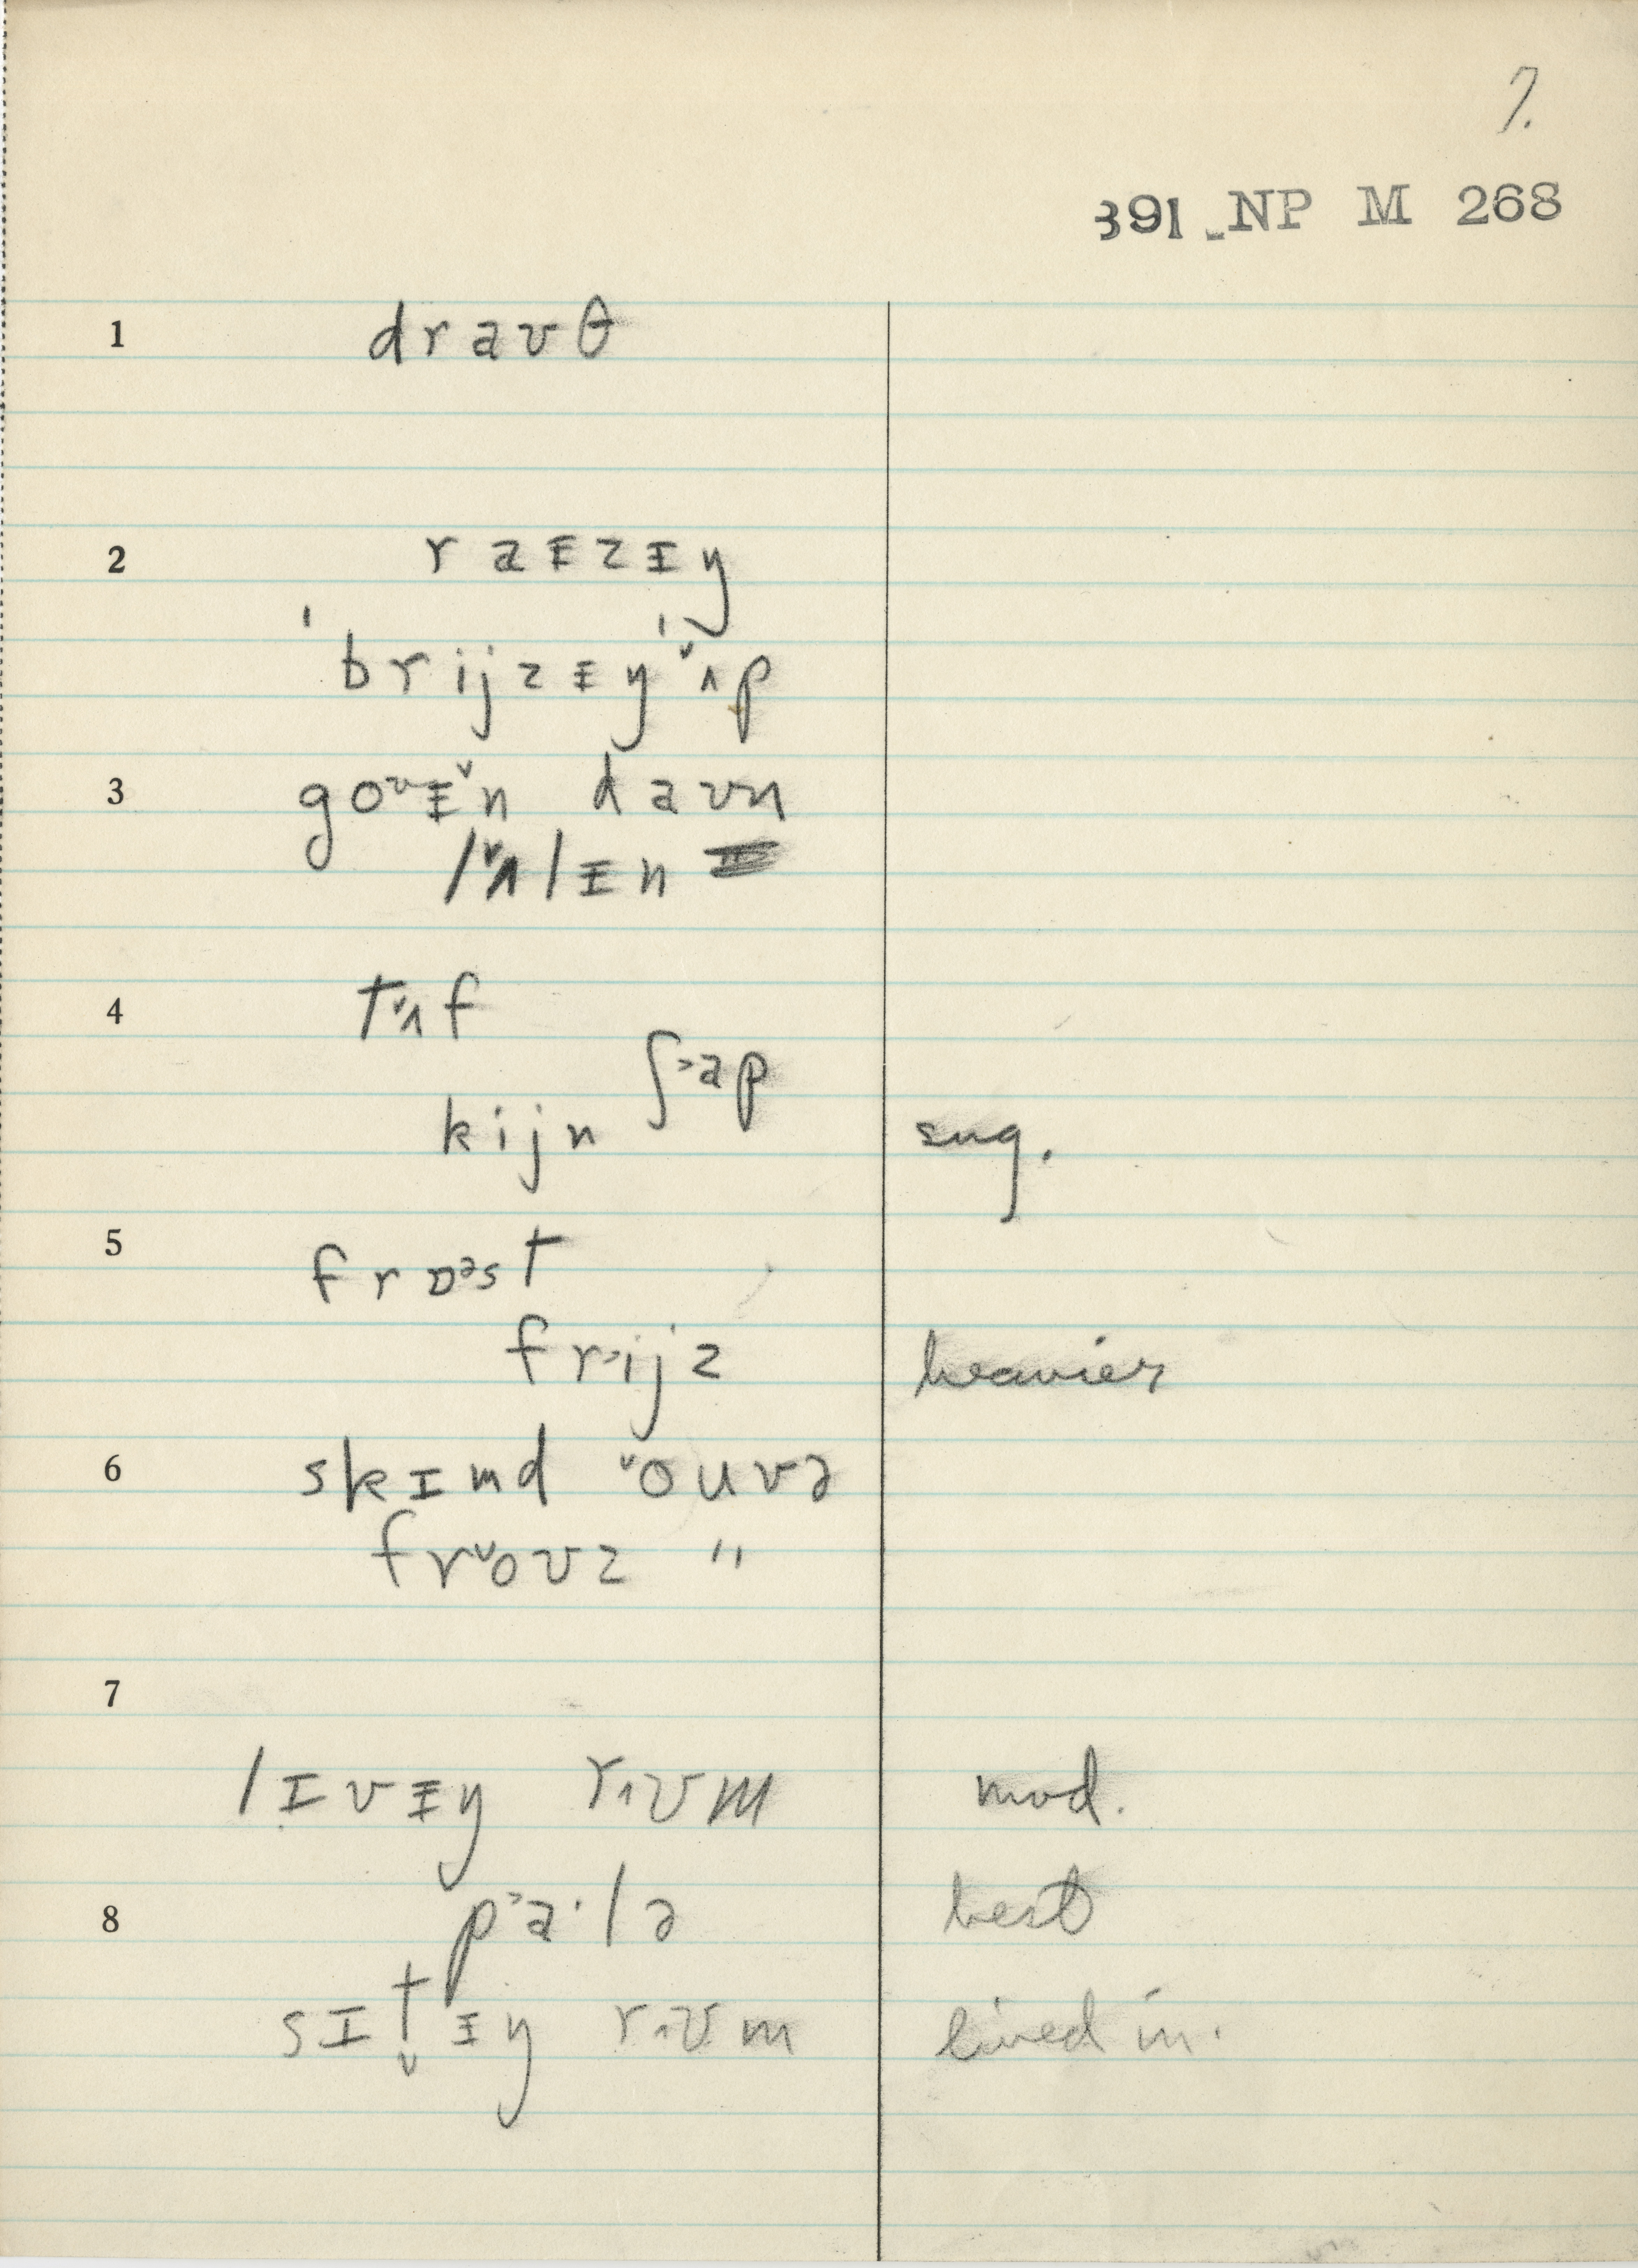 7.
391 NP M 268
1 draʊθ
2 raᵻzᵻŋ
ˈbrijzᵻŋ ˈ˅ʌp
3 goʊᵻ˅n daʊn
l˅ʌlᵻn
4 t˅ʌf
ʃ˃ap
kijn sug.
5 frɒᵊst
fr˃ijz heavier
6 skɪmd ˅ouvə
fr˅oʊz "
7
lɪvᵻŋ r˄ʊm mod.
8 p˃a·lə best
sɪt̬ᵻŋ r˄ʊm lived in.